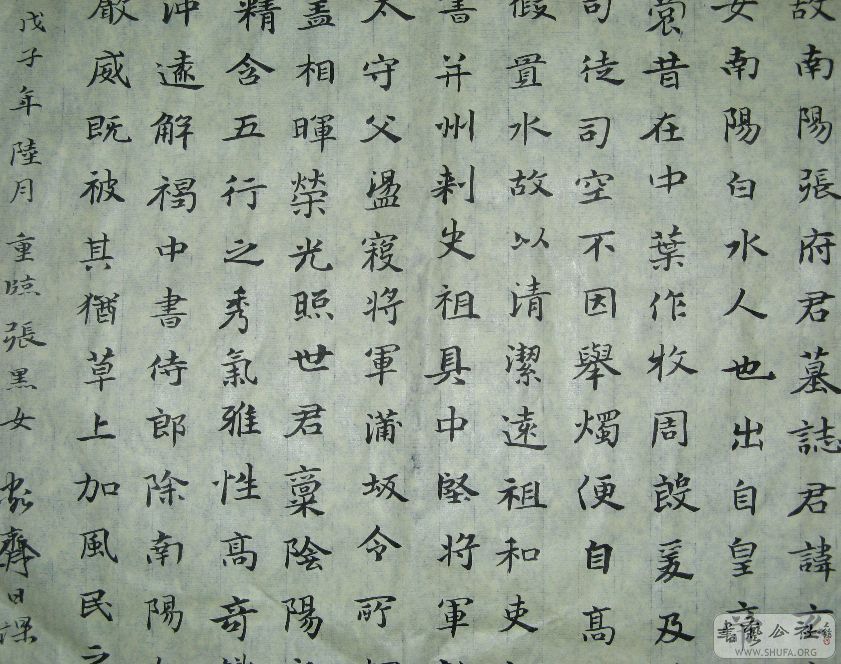 故南陽張府君墓誌君諱
女南陽白水人也出自皇
裳昔在中葉作牧周殷爰及
司徒司空不因舉燭便自高
假置水故以清潔遠祖和吏
書并州刺史祖具中堅將軍
太守父盪寇將軍蒲坂令所
蓋相暉榮光照世君稟陰陽
精含五行之秀氣雅性高奇
沖遠解褐中書侍郎除南陽
嚴威既被其猶草上加風民之
戊子年陸月重臨張黑女 齋日課
書藝公社
WWW.SHUFA.ORG